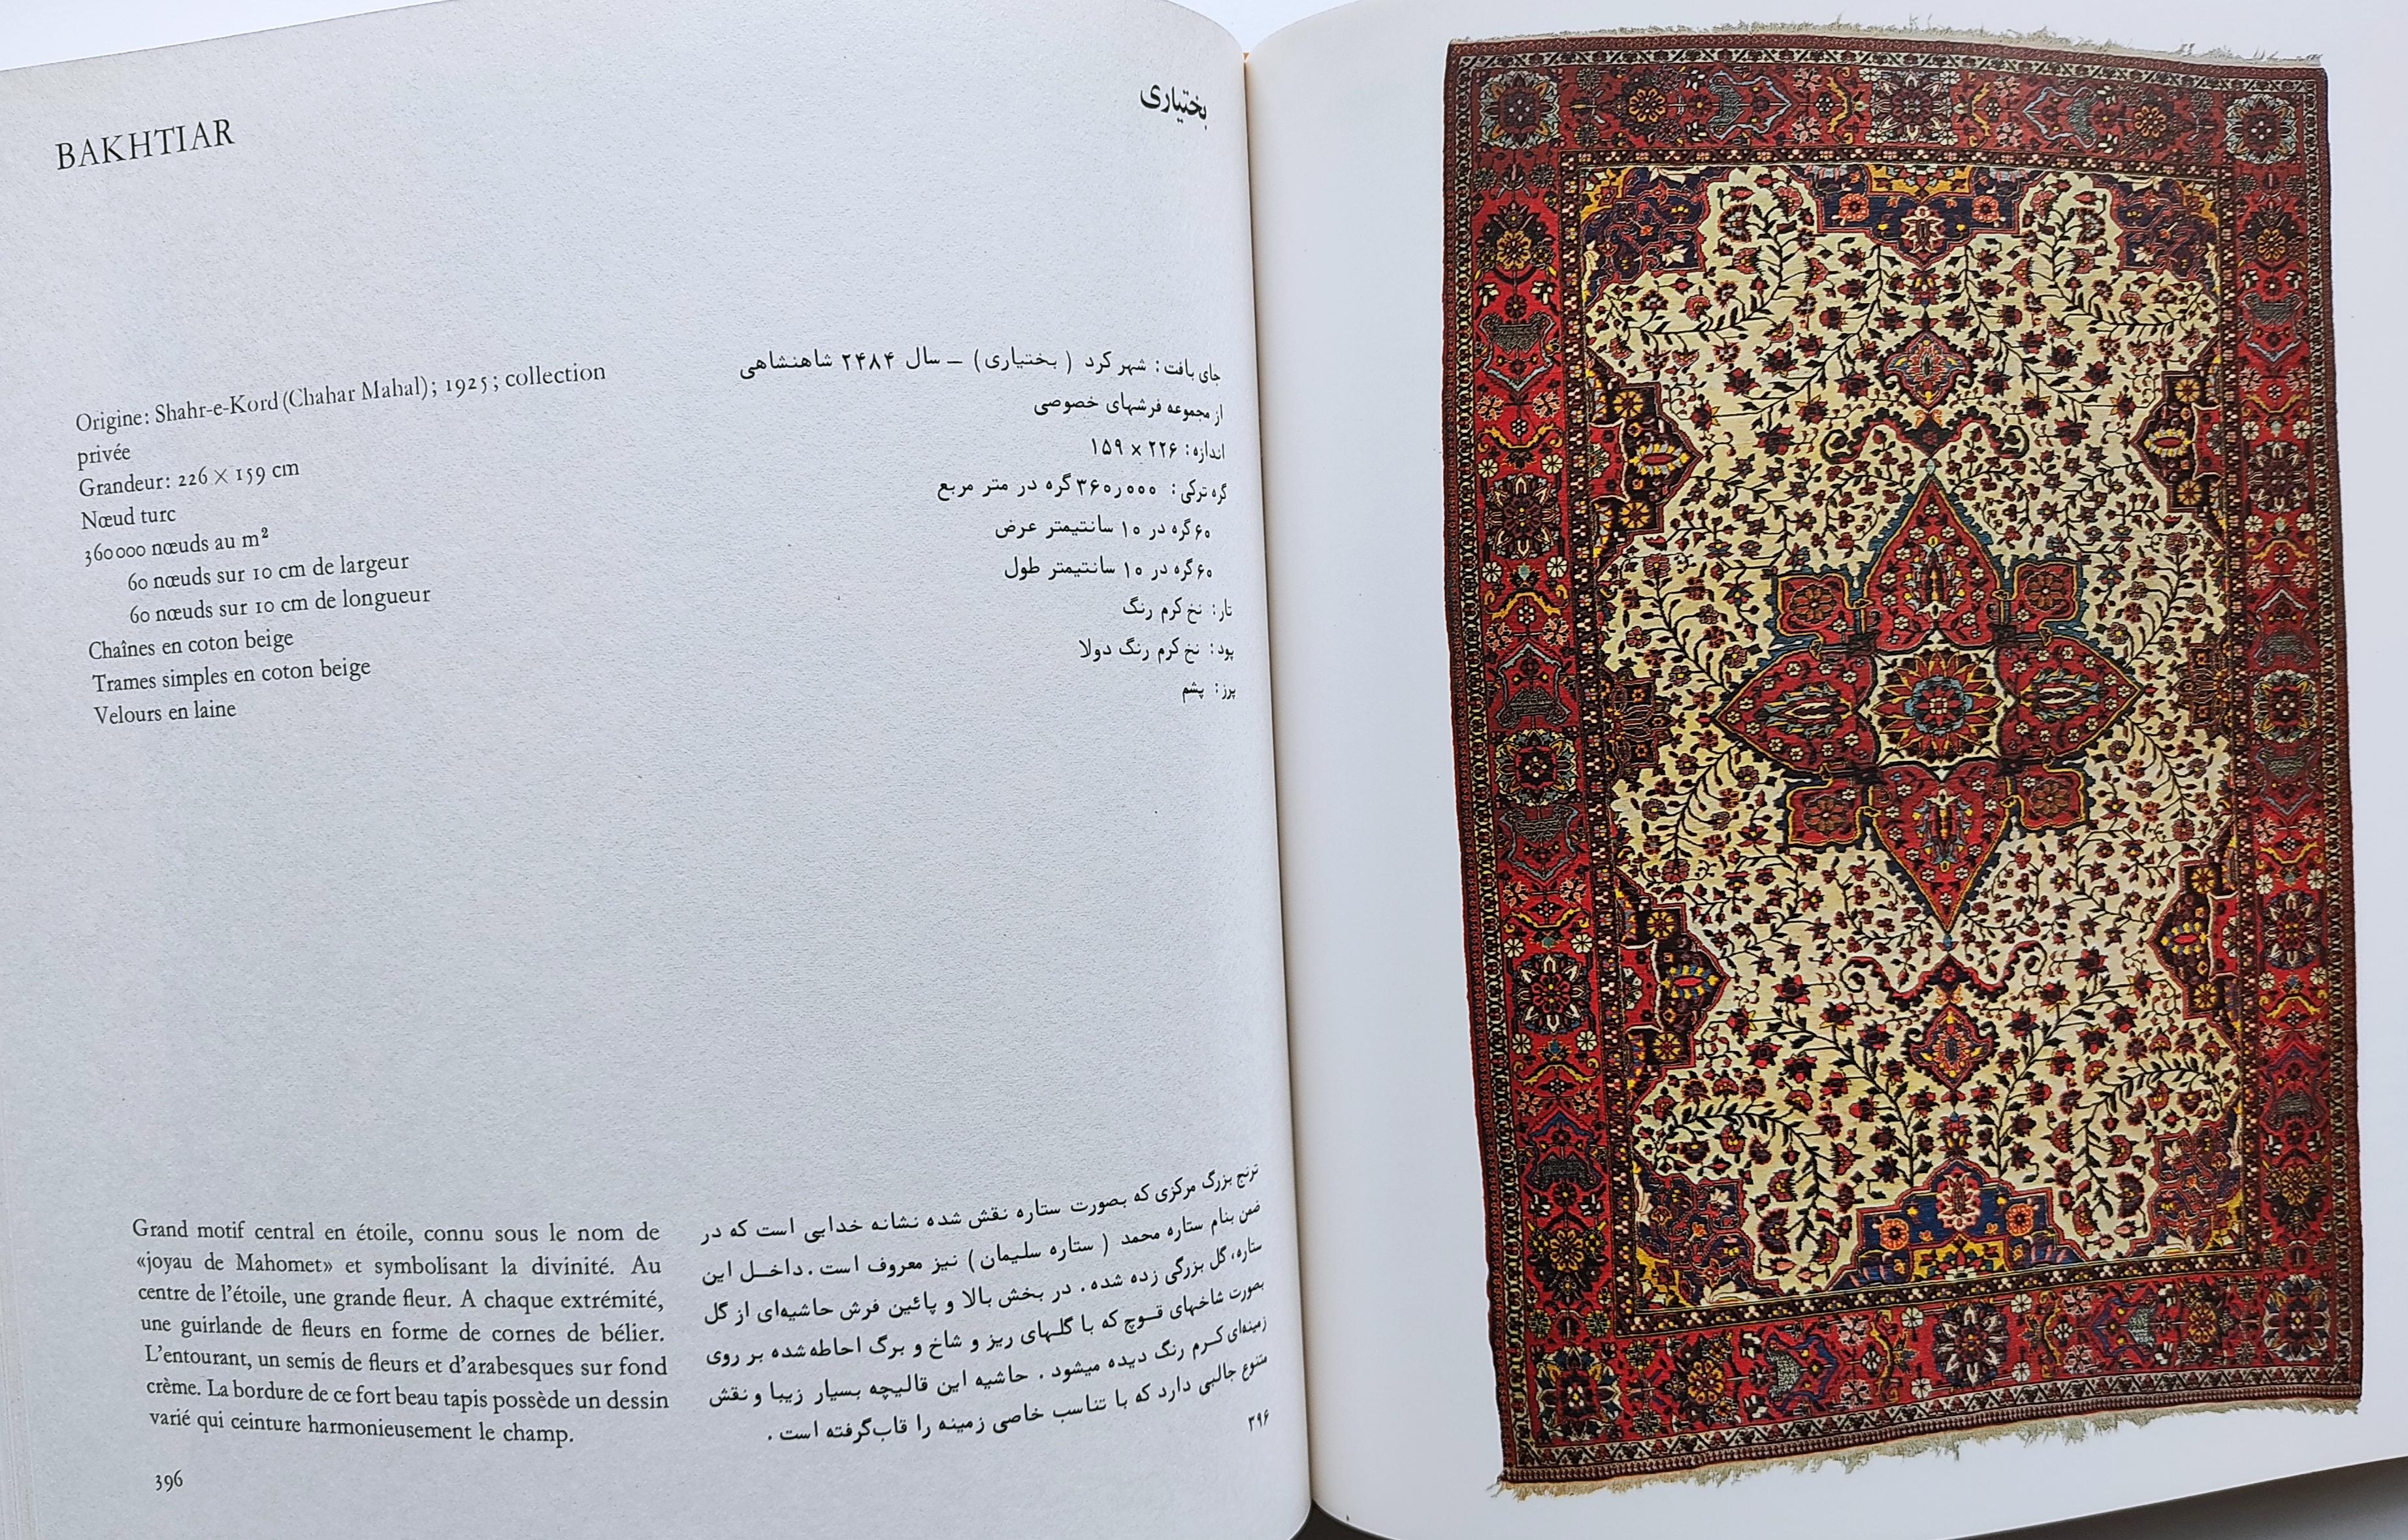 BAKHTIAR
بختیاری
Origine: Shahr-e-Kord (Chahar Mahal); 1925; collection
privée
Grandeur: 226 × 159 cm
Nœud turc
360000 nœuds au m²
60 nœuds sur 10 cm de largeur
60 nœuds sur 10 cm de longueur
Chaînes en coton beige
Trames simples en coton beige
Velours en laine
جای بافت: شهر کرد ( بختیاری) – سال ۲۴۸۴ شاهنشاهی
از مجموعه فرشهای خصوصی
اندازه: ۲۲۶ × ۱۵۹
گره ترکی: ۳۶۰٫۰۰۰ گره در متر مربع
۶۰ گره در ۱۰ سانتیمتر عرض
۶۰ گره در ۱۰ سانتیمتر طول
تار: نخ کرم رنگ
پود: نخ کرم رنگ دولا
پرز: پشم
Grand motif central en étoile, connu sous le nom de
«joyau de Mahomet» et symbolisant la divinité. Au
centre de l'étoile, une grande fleur. A chaque extrémité,
une guirlande de fleurs en forme de cornes de bélier.
L'entourant, un semis de fleurs et d'arabesques sur fond
crème. La bordure de ce fort beau tapis possède un dessin
varié qui ceinture harmonieusement le champ.
396
ترنج بزرگ مرکزی که بصورت ستاره نقش شده نشانه خدایی است که در
ضمن بنام ستاره محمد ( ستاره سلیمان) نیز معروف است. داخل این
ستاره، گل بزرگی زده شده. در بخش بالا و پائین فرش حاشیه‌ای از گل
بصورت شاخهای قوچ که با گلهای ریز و شاخ و برگ احاطه شده بر روی
زمینه‌ای کرم رنگ دیده میشود. حاشیه این قالیچه بسیار زیبا و نقش
متنوع جالبی دارد که با تناسب خاصی زمینه را قاب گرفته است.
۳۹۶